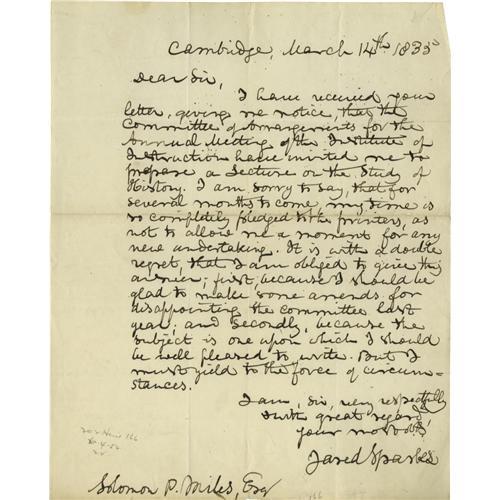 Cambridge, March 14th 1835
Dear Sir,
I have received your
letter, giving me notice, that the
Committee of Arrangements for the
Annual Meeting of the Institute of
Instruction have invited me to
prepare a Lecture on the Study of
History. I am sorry to say, that for
several months to come, my time is
so completely pledged to the printers, as
not to allow me a moment for any
new undertaking. It is with a double
regret, that I am obliged to give this
answer; first, because I should be
glad to make some amends for
disappointing the committee last
year; and secondly, because the
subject is one upon which I should
be well pleased to write. But I
must yield to the force of circum-
stances.
I am, Sir, very respectfully
& with great regard,
your most obt.
Jared Sparks
Solomon P. Miles, Esq